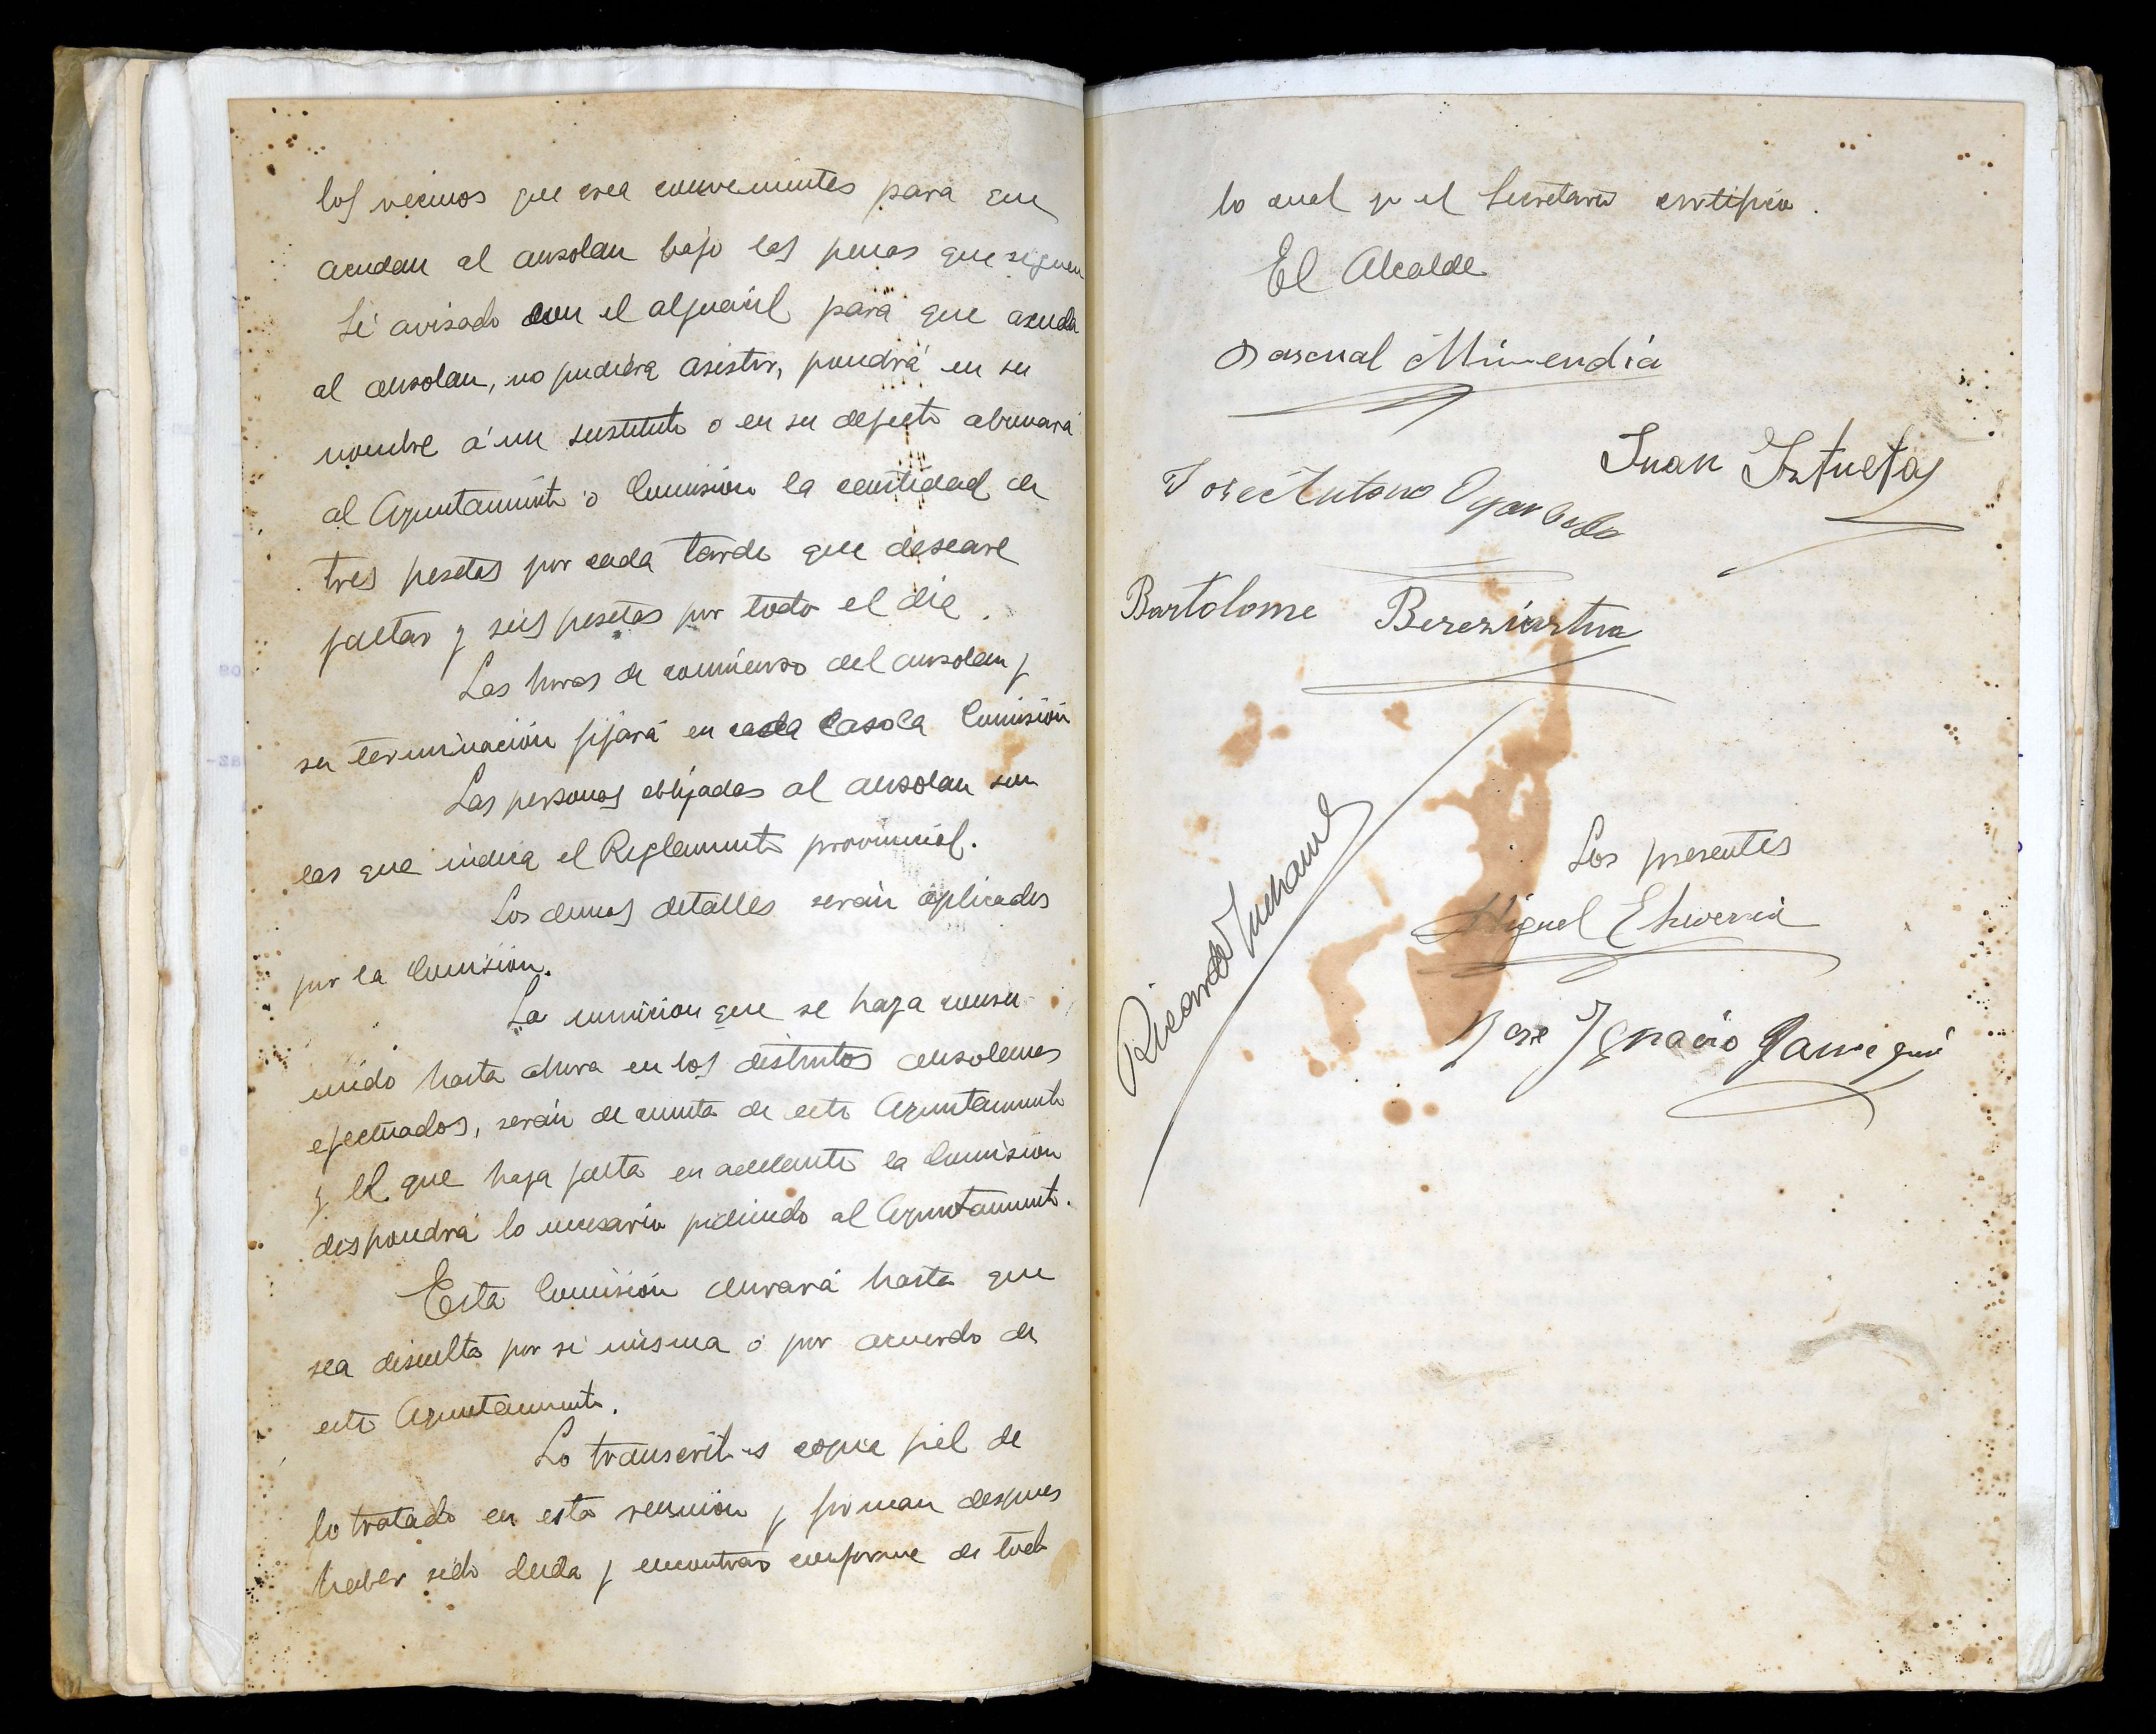 los vecinos que crea convenientes para que
acudan al ausolan bajo las penas que siguen
Si avisado con el alguacil para que acuda
al ausolan, no pudiera asistir, pondrá en su
nombre á un sustituto o en su defecto abonará
al Ayuntamiento ó Comision la cantidad de
tres pesetas por cada tarde que deseare
faltar y seis pesetas por todo el dia.
Las horas de comienzo del ausolan y
su terminación fijará en cada caso la Comisión
Las personas obligadas al ausolan son
las que indica el Reglamento provincial.
Los demas detalles serán aplicados
por la Comisión.
La municion que se haya consu
mido hasta ahora en los distintos ausolanes
efectuados, serán de cuenta de este Ayuntamiento
y el que haga falta en adelante la Comision
dispondrá lo necesario pidiendo al Ayuntamiento.
Esta Comisión durará hasta que
sea disuelta por si misma ó por acuerdo de
este Ayuntamiento.
Lo transcrito es copia fiel de
lo tratado en esta reunión y firman despues
haber sido leida y encontrar conforme de todo
lo cual yo el Secretario certifico.
El Alcalde
Pascual Mimendia
Juan Iztueta
Jose Antonio
Bartolome Bereziartua
Ricardo
Los presentes
Miguel Echeverria
Jose Ignacio Jauregui